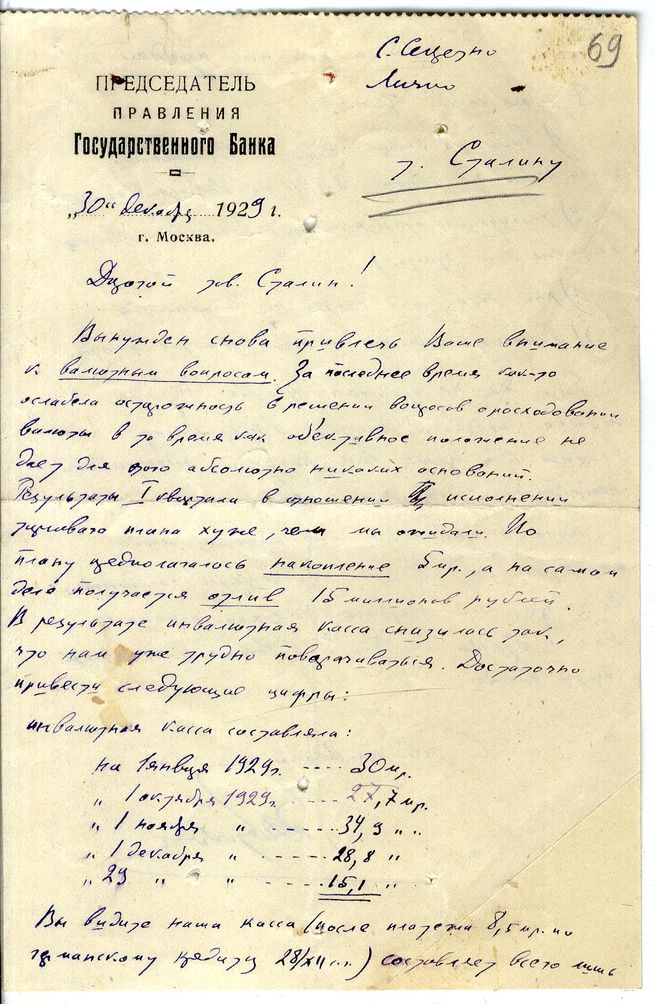 69
С. Секретно
Лично
ПРЕДСЕДАТЕЛЬ
ПРАВЛЕНИЯ
Государственного Банка
т. Сталину
„30“ декабря 1929 г.
г. Москва.
Дорогой тов. Сталин!
Вынужден снова привлечь Ваше внимание
к валютным вопросам. За последнее время как-то
ослабела осторожность в решении вопросов о расходовании
валюты в то время как об'ективное положение не
дает для этого абсолютно никаких оснований.
Результаты I квартала в отношении исполнения
плана хуже, чем мы ожидали. По
плану предполагалось накопление 5 мр., а на самом
деле получается отлив 15 миллионов рублей.
В результате инвалютная касса снизилась так,
что нам уже трудно поворачиваться. Достаточно
привести следующие цифры:
инвалютная касса составляла:
на 1 января 1929 г. ---- 30 мр.
„ 1 октября 1929 г. ---- 27,7 мр.
„ 1 ноября „ ---- 34,9 „ „
„ 1 декабря „ ---- 28,8 „
„ 29 „ „ ---- 15,1 „
Вы видите наша касса (после платежа 8,5 мр. по
германскому кредиту 28/XII с.г.) составляет всего лишь